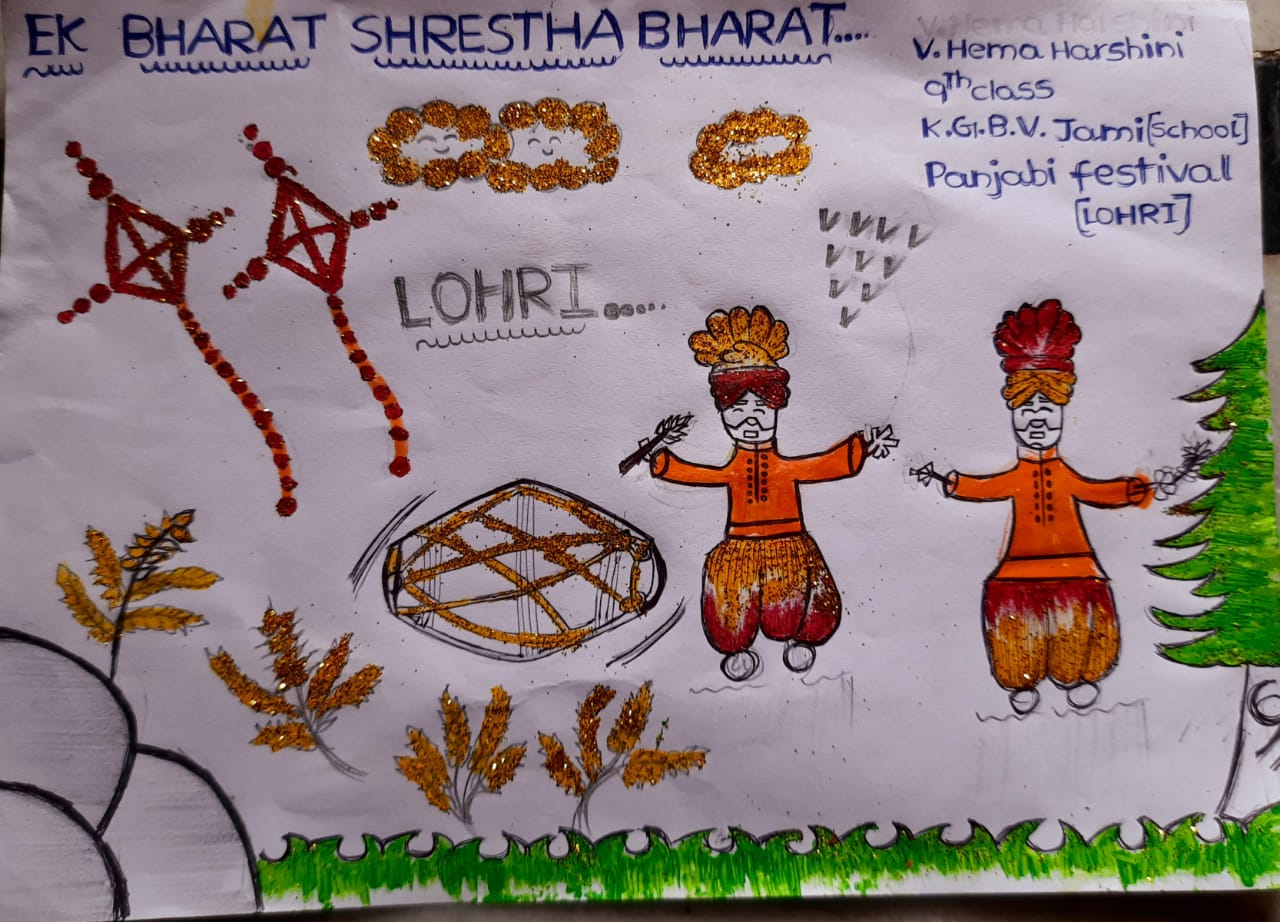 EK BHARAT SHRESTHA BHARAT....
V. Hema Harshini
V. Hema Harshini
9th class
K.G.B.V. Jami[School]
Panjabi festivall
[LOHRI]
LOHRI.....